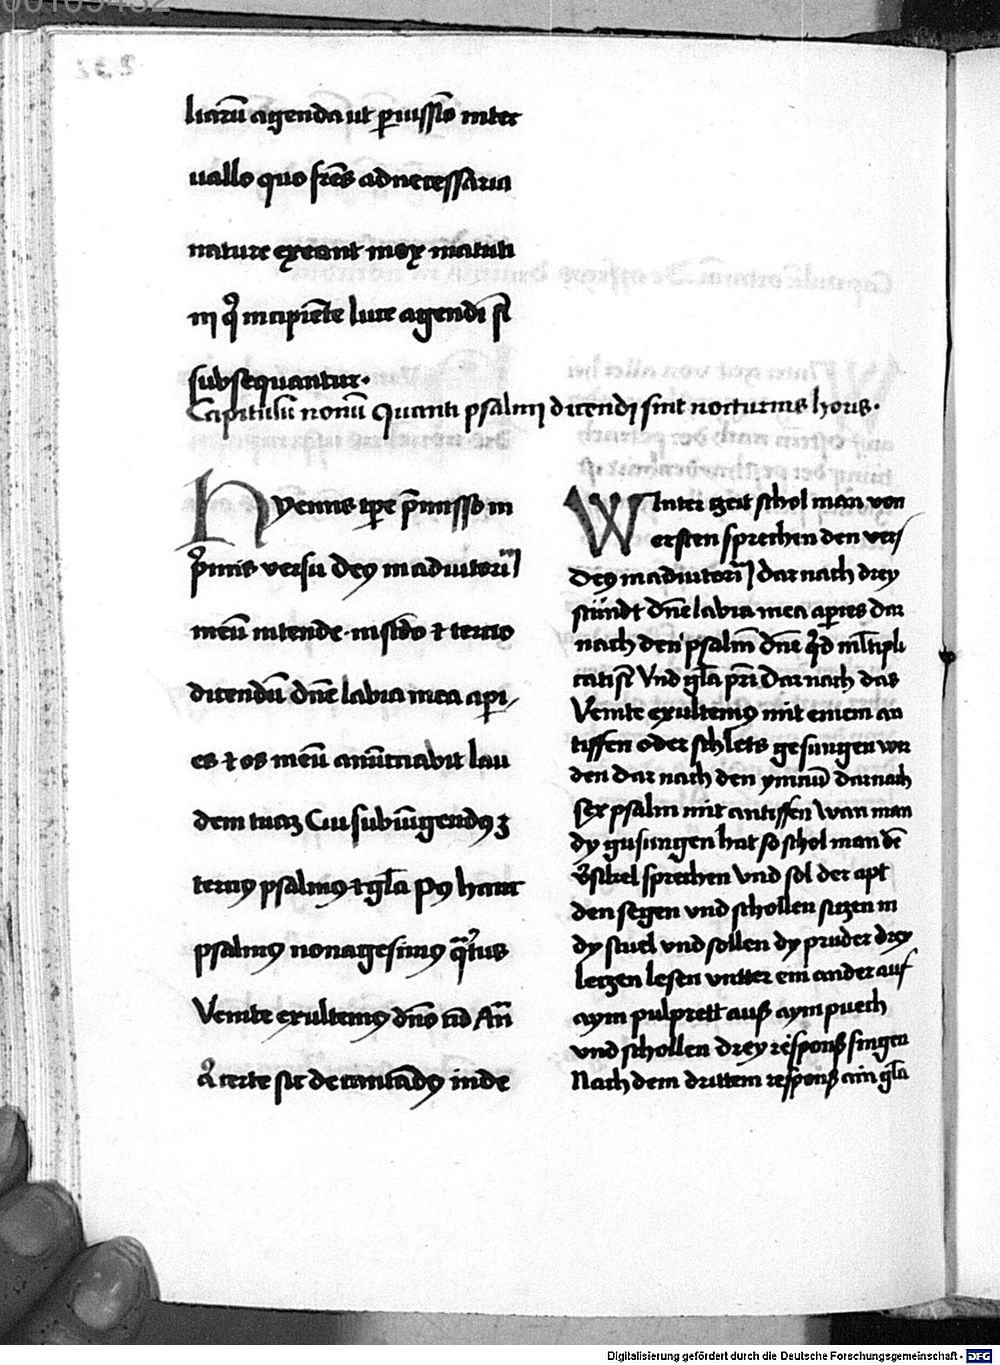 liarū agenda ut ꝑuissīo inter
uallo quo fr̄es ad necessaria
nature exeant mox matuti
ni q̄ incipiēte luce agendi st̄
subsequantur.
Capitulū nonū Quanti psalmi dicendi sint nocturnis horis.
Hyemis tꝑe p̄misso in
p̄mis versu Deꝯ in adiutoriū
meū intende. insc̄do ⁊ tercio
dicendū dn̄e labia mea aperi
es ⁊ os meū anūtiabit lau
dem tuaꝫ Cui subiūgendꝯ ꝫ
terciꝯ psalmꝯ ⁊ gl̄a Pꝯ hunc
psalmꝯ nonagesimꝯ q̄rtus
Venite exultemꝯ dn̄o cū An̄
aut certe sic decantādꝯ inde
Winter zeit schol man von
ersten sprechen den vers
Deꝯ in adiutoriū dar nach drey
stündt dn̄e labia mea aperies dar
nach den psalm̄ dn̄e q̄d ml̄tipli
cati st̄ Vnd gl̄a pr̄i Dar nach das
Venite exultemꝯ mit einem an
tiffen oder schlets gesungen wer
den Dar nach den ymnū dar nach
sex psalm mit antiffen Wan man
dy gesungen hat so schol man dē
v̄sickel sprechen vnd sol der apt
den segen vnd schollen siczen in
dy stuel vnd sollen dy pruder drey
leczen lesen vntter ein ander auf
aym pulprett auß aym puech
vnd schollen drey respons singen
Nach dem drittem respons ain gl̄a
Digitalisierung gefördert durch die Deutsche Forschungsgemeinschaft - DFG